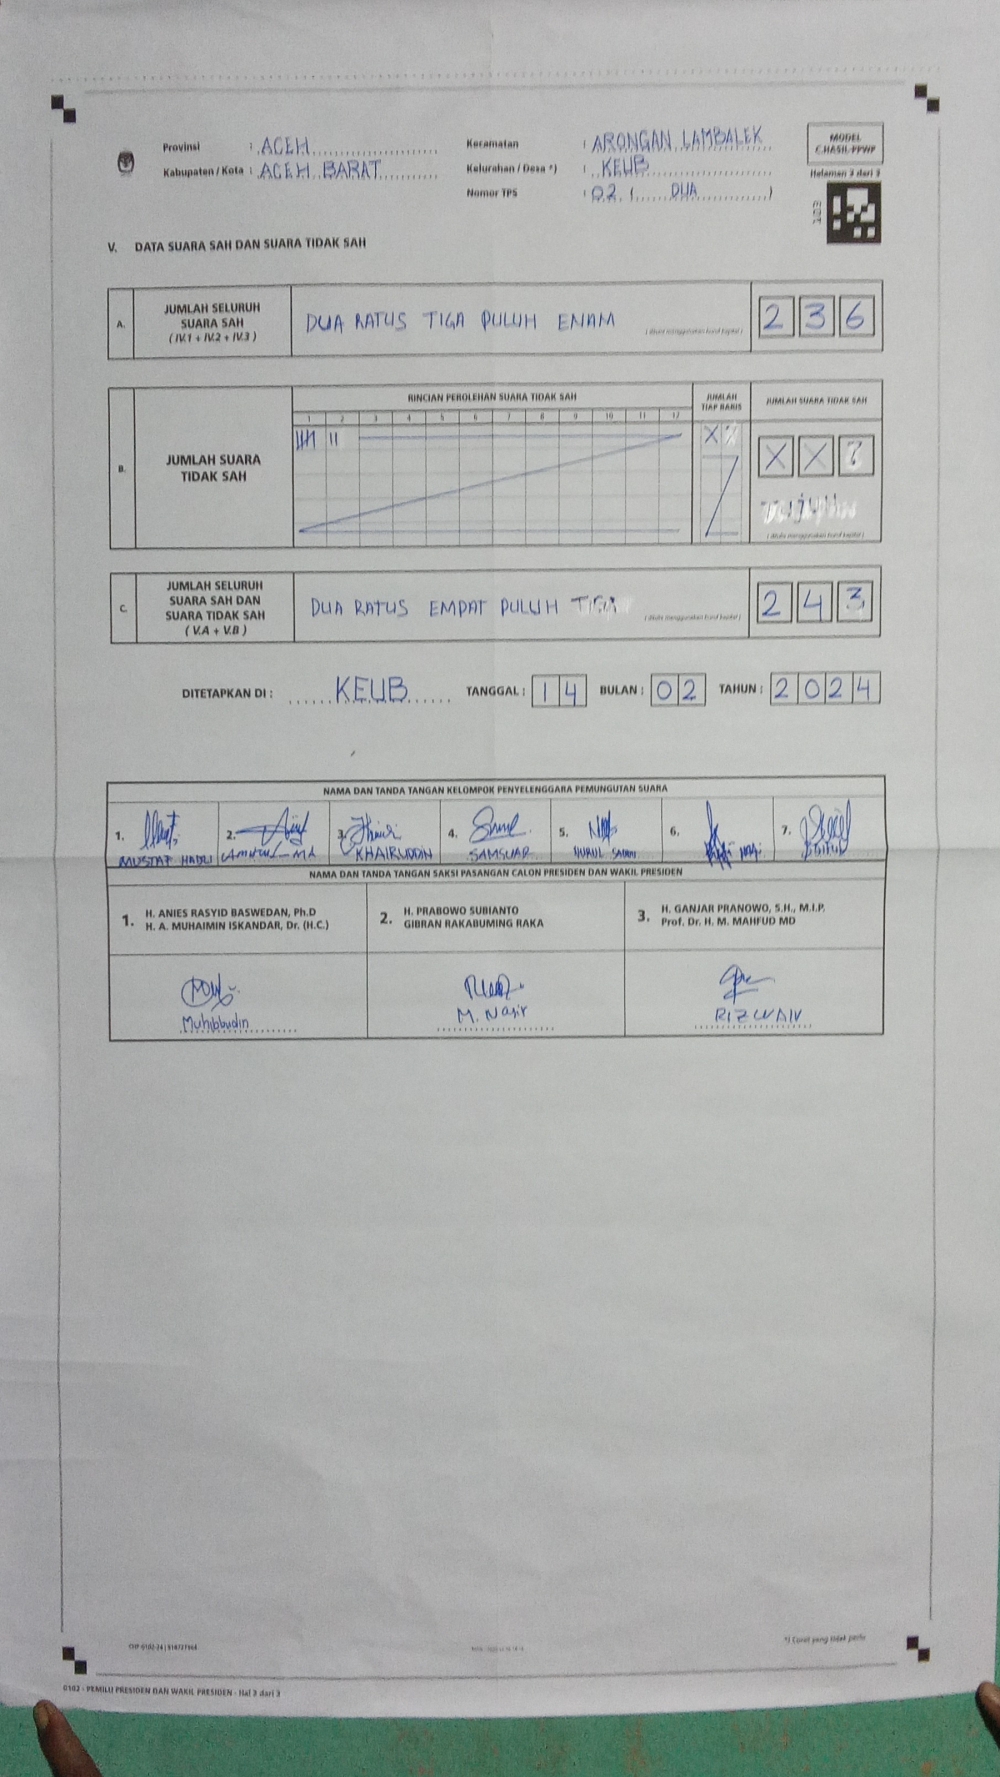 Provinsi : ACEH
Kabupaten / Kota : ACEH BARAT
Kecamatan : ARONGAN LAMBALEK
Kelurahan / Desa *) : KEUB
Nomor TPS : 02 ( DUA )
MODEL
C.HASIL-PPWP
Halaman 3 dari 3
V. DATA SUARA SAH DAN SUARA TIDAK SAH
A. JUMLAH SELURUH
SUARA SAH
( IV.1 + IV.2 + IV.3 )
DUA RATUS TIGA PULUH ENAM
( ditulis menggunakan huruf kapital )
2 3 6
B. JUMLAH SUARA
TIDAK SAH
RINCIAN PEROLEHAN SUARA TIDAK SAH
1 2 3 4 5 6 7 8 9 10 11 12
JUMLAH
TIAP BARIS
X
JUMLAH SUARA TIDAK SAH
X X 7
( ditulis menggunakan huruf kapital )
C. JUMLAH SELURUH
SUARA SAH DAN
SUARA TIDAK SAH
( V.A + V.B )
DUA RATUS EMPAT PULUH TIGA
( ditulis menggunakan huruf kapital )
2 4 3
DITETAPKAN DI : KEUB TANGGAL : 14 BULAN : 02 TAHUN : 2024
NAMA DAN TANDA TANGAN KELOMPOK PENYELENGGARA PEMUNGUTAN SUARA
1. 2. 3. 4. 5. 6. 7.
MUSTAF HADLI KHAIRUDDIN SAMSUAR
NAMA DAN TANDA TANGAN SAKSI PASANGAN CALON PRESIDEN DAN WAKIL PRESIDEN
1. H. ANIES RASYID BASWEDAN, Ph.D
H. A. MUHAIMIN ISKANDAR, Dr. (H.C.)
2. H. PRABOWO SUBIANTO
GIBRAN RAKABUMING RAKA
3. H. GANJAR PRANOWO, S.H., M.I.P.
Prof. Dr. H. M. MAHFUD MD
Muhibbudin
M. Nasir
RIZWAN
*) Coret yang tidak perlu
0102 - PEMILU PRESIDEN DAN WAKIL PRESIDEN - Hal 3 dari 3